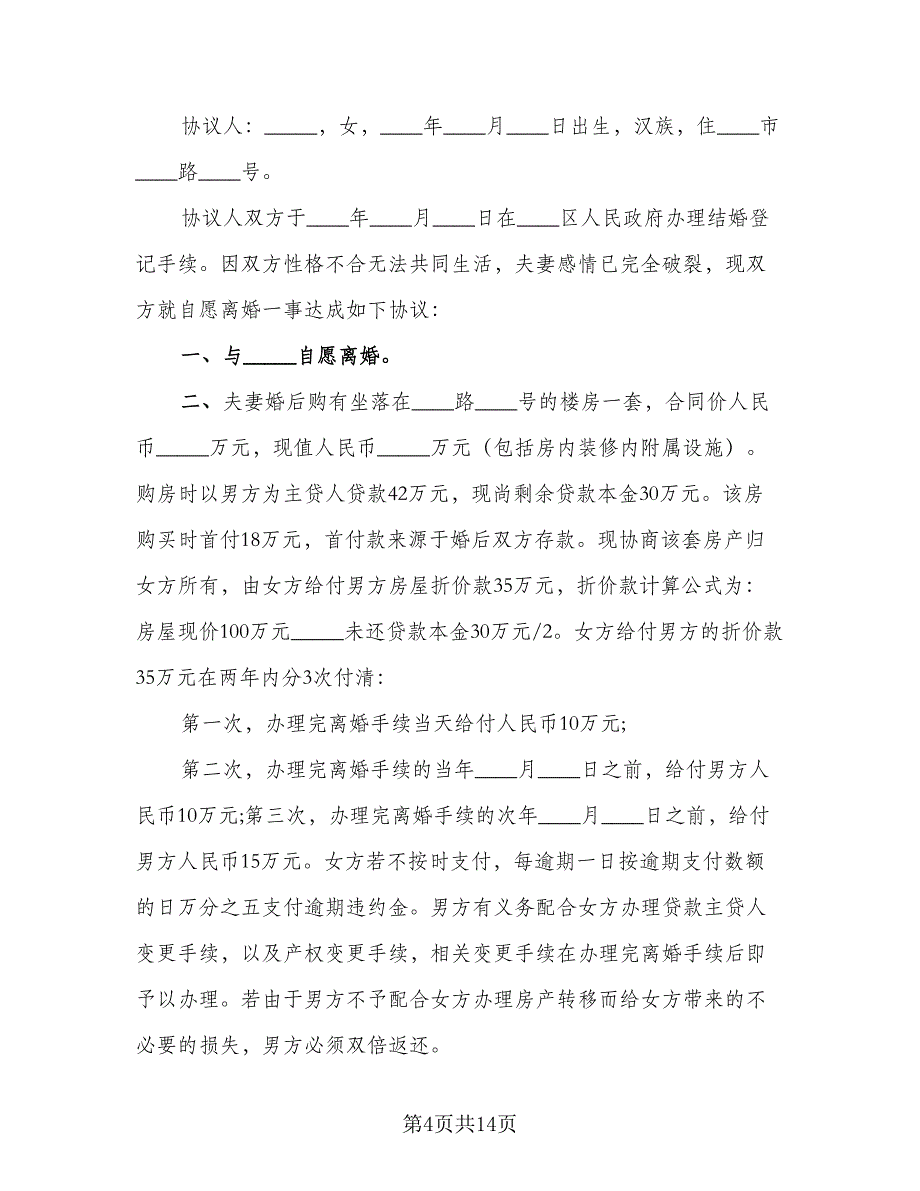 协议人：_____，女，____年____月____日出生，汉族，住____市
____路____号。
协议人双方于____年____月____日在____区人民政府办理结婚登
记手续。因双方性格不合无法共同生活，夫妻感情已完全破裂，现双
方就自愿离婚一事达成如下协议：
一、与_____自愿离婚。
二、夫妻婚后购有坐落在____路____号的楼房一套，合同价人民
币_____万元，现值人民币_____万元（包括房内装修内附属设施）。
购房时以男方为主贷人贷款42万元，现尚剩余贷款本金30万元。该房
购买时首付18万元，首付款来源于婚后双方存款。现协商该套房产归
女方所有，由女方给付男方房屋折价款35万元，折价款计算公式为：
房屋现价100万元_____未还贷款本金30万元/2。女方给付男方的折价款
35万元在两年内分3次付清：
第一次，办理完离婚手续当天给付人民币10万元;
第二次，办理完离婚手续的当年____月____日之前，给付男方人
民币10万元;第三次，办理完离婚手续的次年____月____日之前，给付
男方人民币15万元。女方若不按时支付，每逾期一日按逾期支付数额
的日万分之五支付逾期违约金。男方有义务配合女方办理贷款主贷人
变更手续，以及产权变更手续，相关变更手续在办理完离婚手续后即
予以办理。若由于男方不予配合女方办理房产转移而给女方带来的不
必要的损失，男方必须双倍返还。
第4页共14页